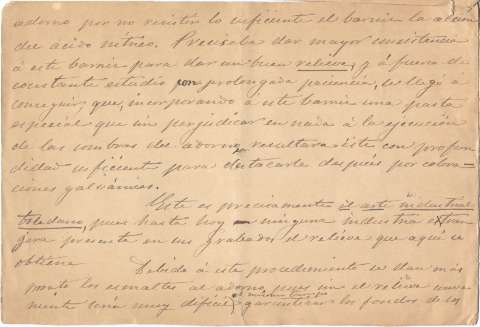 adorno por no resistir lo suficiente el barniz la acción
del acido nítrico. Precisaba dar mayor consistencia
á este barniz para dar un buen relieve, y á fuerza de
constante estudio con prolongada paciencia, se llegó á
conseguir, que, incorporando á este barniz una pasta
especial que sin perjudicar en nada á la ejecución
de las sombras del adorno resultara éste con profun
didad suficiente para destacarle después por colora-
ciones galvánicas.
Este es precisamente el arte industrial
toledano, pues hasta hoy ninguna industria extran
gera presente en sus grabados el relieve que aquí se
obtiene
Debido á este procedimiento se dan más
pronto los esmaltes al adorno, pues sin el relieve
sería muy difícil el mismo tiempo garantizar los fondos de los